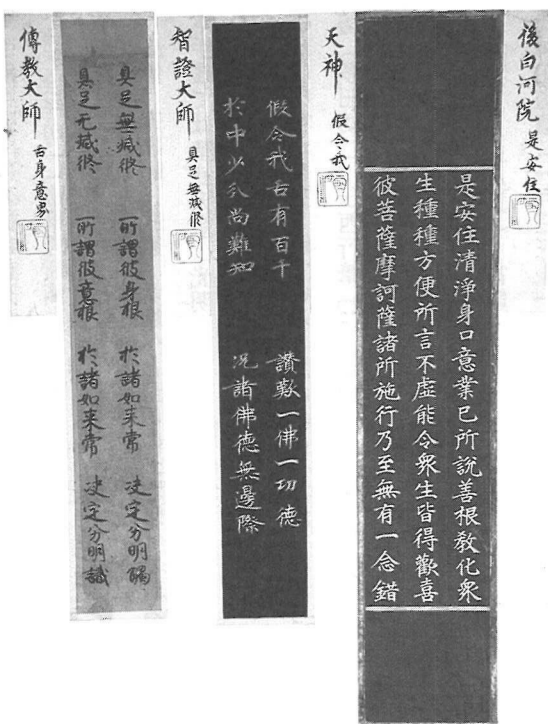 後白河院 是安住
是安住清淨身口意業已所說善根教化衆
生種種方便所言不虛能令衆生皆得歡喜
彼菩薩摩訶薩諸所施行乃至無有一念錯
天神 假令我
假令我舌有百千 讚歎一佛一功德
於中少分尚難知 况諸佛德無邊際
智證大師 具足無減修
具足無減修 所謂彼身根 於諸如来常 决定分明觸
具足无減修 所謂彼意根 於諸如来常 决定分明識
傳教大師 舌身意界